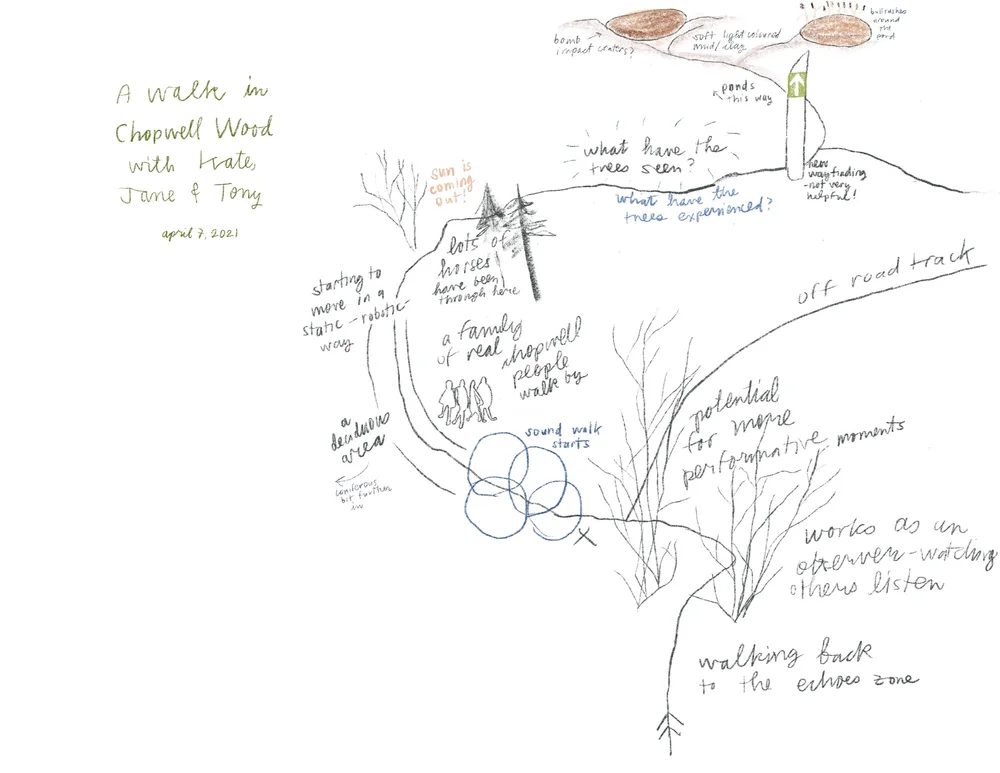 A walk in
Chopwell Wood
with Kate,
Jane & Tony
april 7, 2021
bomb
impact craters?
soft light coloured
mud/clay
bullrushes
around
the
pond
ponds
this way
new
wayfinding
-not very
helpful!
what have the
trees seen?
what have the
trees experienced?
sun is
coming
out!
lots of
horses
have been
through here
starting to
move in a
static-robotic-
way
a family
of real
chopwell
people
walk by
a
deciduous
area
coniferous
bit further
in
sound walk
starts
off road track
potential
for more
performative moments
works as an
observer-watching
others listen
walking back
to the echoes zone